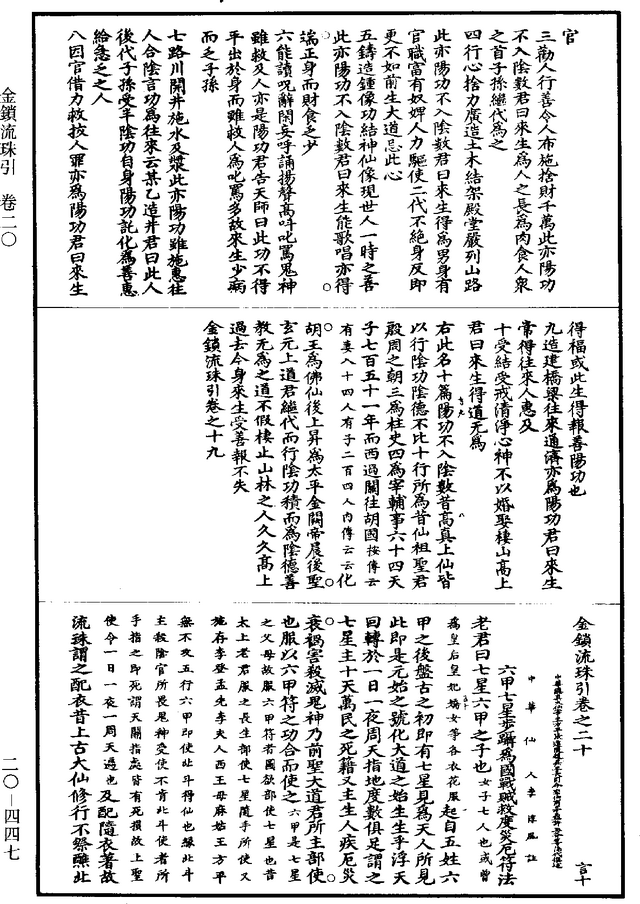 金鎖流珠引　卷二〇
二〇—四四七
官
三勸人行善令人布施捨財千萬此亦陽功
不入陰數君曰來生爲人之長爲肉食人衆
之首子孫繼代爲之
四行心捨力廣造土木結架殿堂嚴列山路
此亦陽功不入陰數君曰來生得爲男身有
官職富有奴婢人力驅使二代不絕身反即
更不如前生大道忌此心
五鑄造鍾像功結神仙像現世人一時之善
此亦陽功不入陰數君曰來生能歌唱亦得
端正身而財食乏少
六能讀呪解閑妄呼誦揚聲高呌叱罵鬼神
雖救又人亦是陽功君告天師曰此功不得
平出於身而雖救人爲叱罵多故來生少病
而乏子孫
七路川開井施水及漿此亦陽功雖施惠往
人合陰言功爲往來云某乙造井君曰此人
後代子孫受半陰功自身陽功託化爲善惠
給急之之人
八因官借力救拔人罪亦爲陽功君曰來生
得福或此生得報善陽功也
九造建橋梁往來通濟亦爲陽功君曰來生
常得往來人惠及
十受結受戒清淨心神不以婚娶棲山高上
君曰來生得道无爲
右此名十篇陽功不入陰數昔高真上仙皆
以行陰功陰德不比十行所爲昔仙祖聖君
殷周之朝三爲柱史四爲宰輔事六十四天
子七百五十一年而西過關往胡國按傳云
有妻八十四人有子二百四人內傳云云化
胡王爲佛仙後上昇爲太平金闕帝晨後聖
玄元上道君繼代而行陰功積而爲陰德善
教无爲之道不假棲止山林之人久久高上
過去今身來生受善報不失
金鎖流珠引卷之十九
金鎖流珠引卷之二十　言十
中華仙人李淳風註
六甲七星步躡爲國戰賊救度災厄符法
老君曰七星六甲之子也女子七人也或曾
爲皇后皇妃嬌女等各衣花服起自五姓六
甲之後盤古之初即有七星見爲天人所見
此即是元始之號化大道之始生生乎浮天
回轉於一日一夜周天指地度數俱足謂之
七星主十天萬民之死籍又主生人疾厄災
衰禍害殺滅鬼神乃前聖大道君所主部使
也服以六甲符之功合而使之六甲是七星
之父母故服六甲符者國欲部使七星也昔
太上老君服之長生部使七星隨手所使又
施存李登孟先李夫人西王母麻姑王方平
無不攻五行六甲即使北斗得仙也緣北斗
主殺陰官所畏鬼神受使不肯北斗使者所
手指之即死謂天關指處皆有死損故上聖
使令一日一夜一周天過也及配隨衣著故
流珠謂之配衣昔上古大仙修行不祭醮北